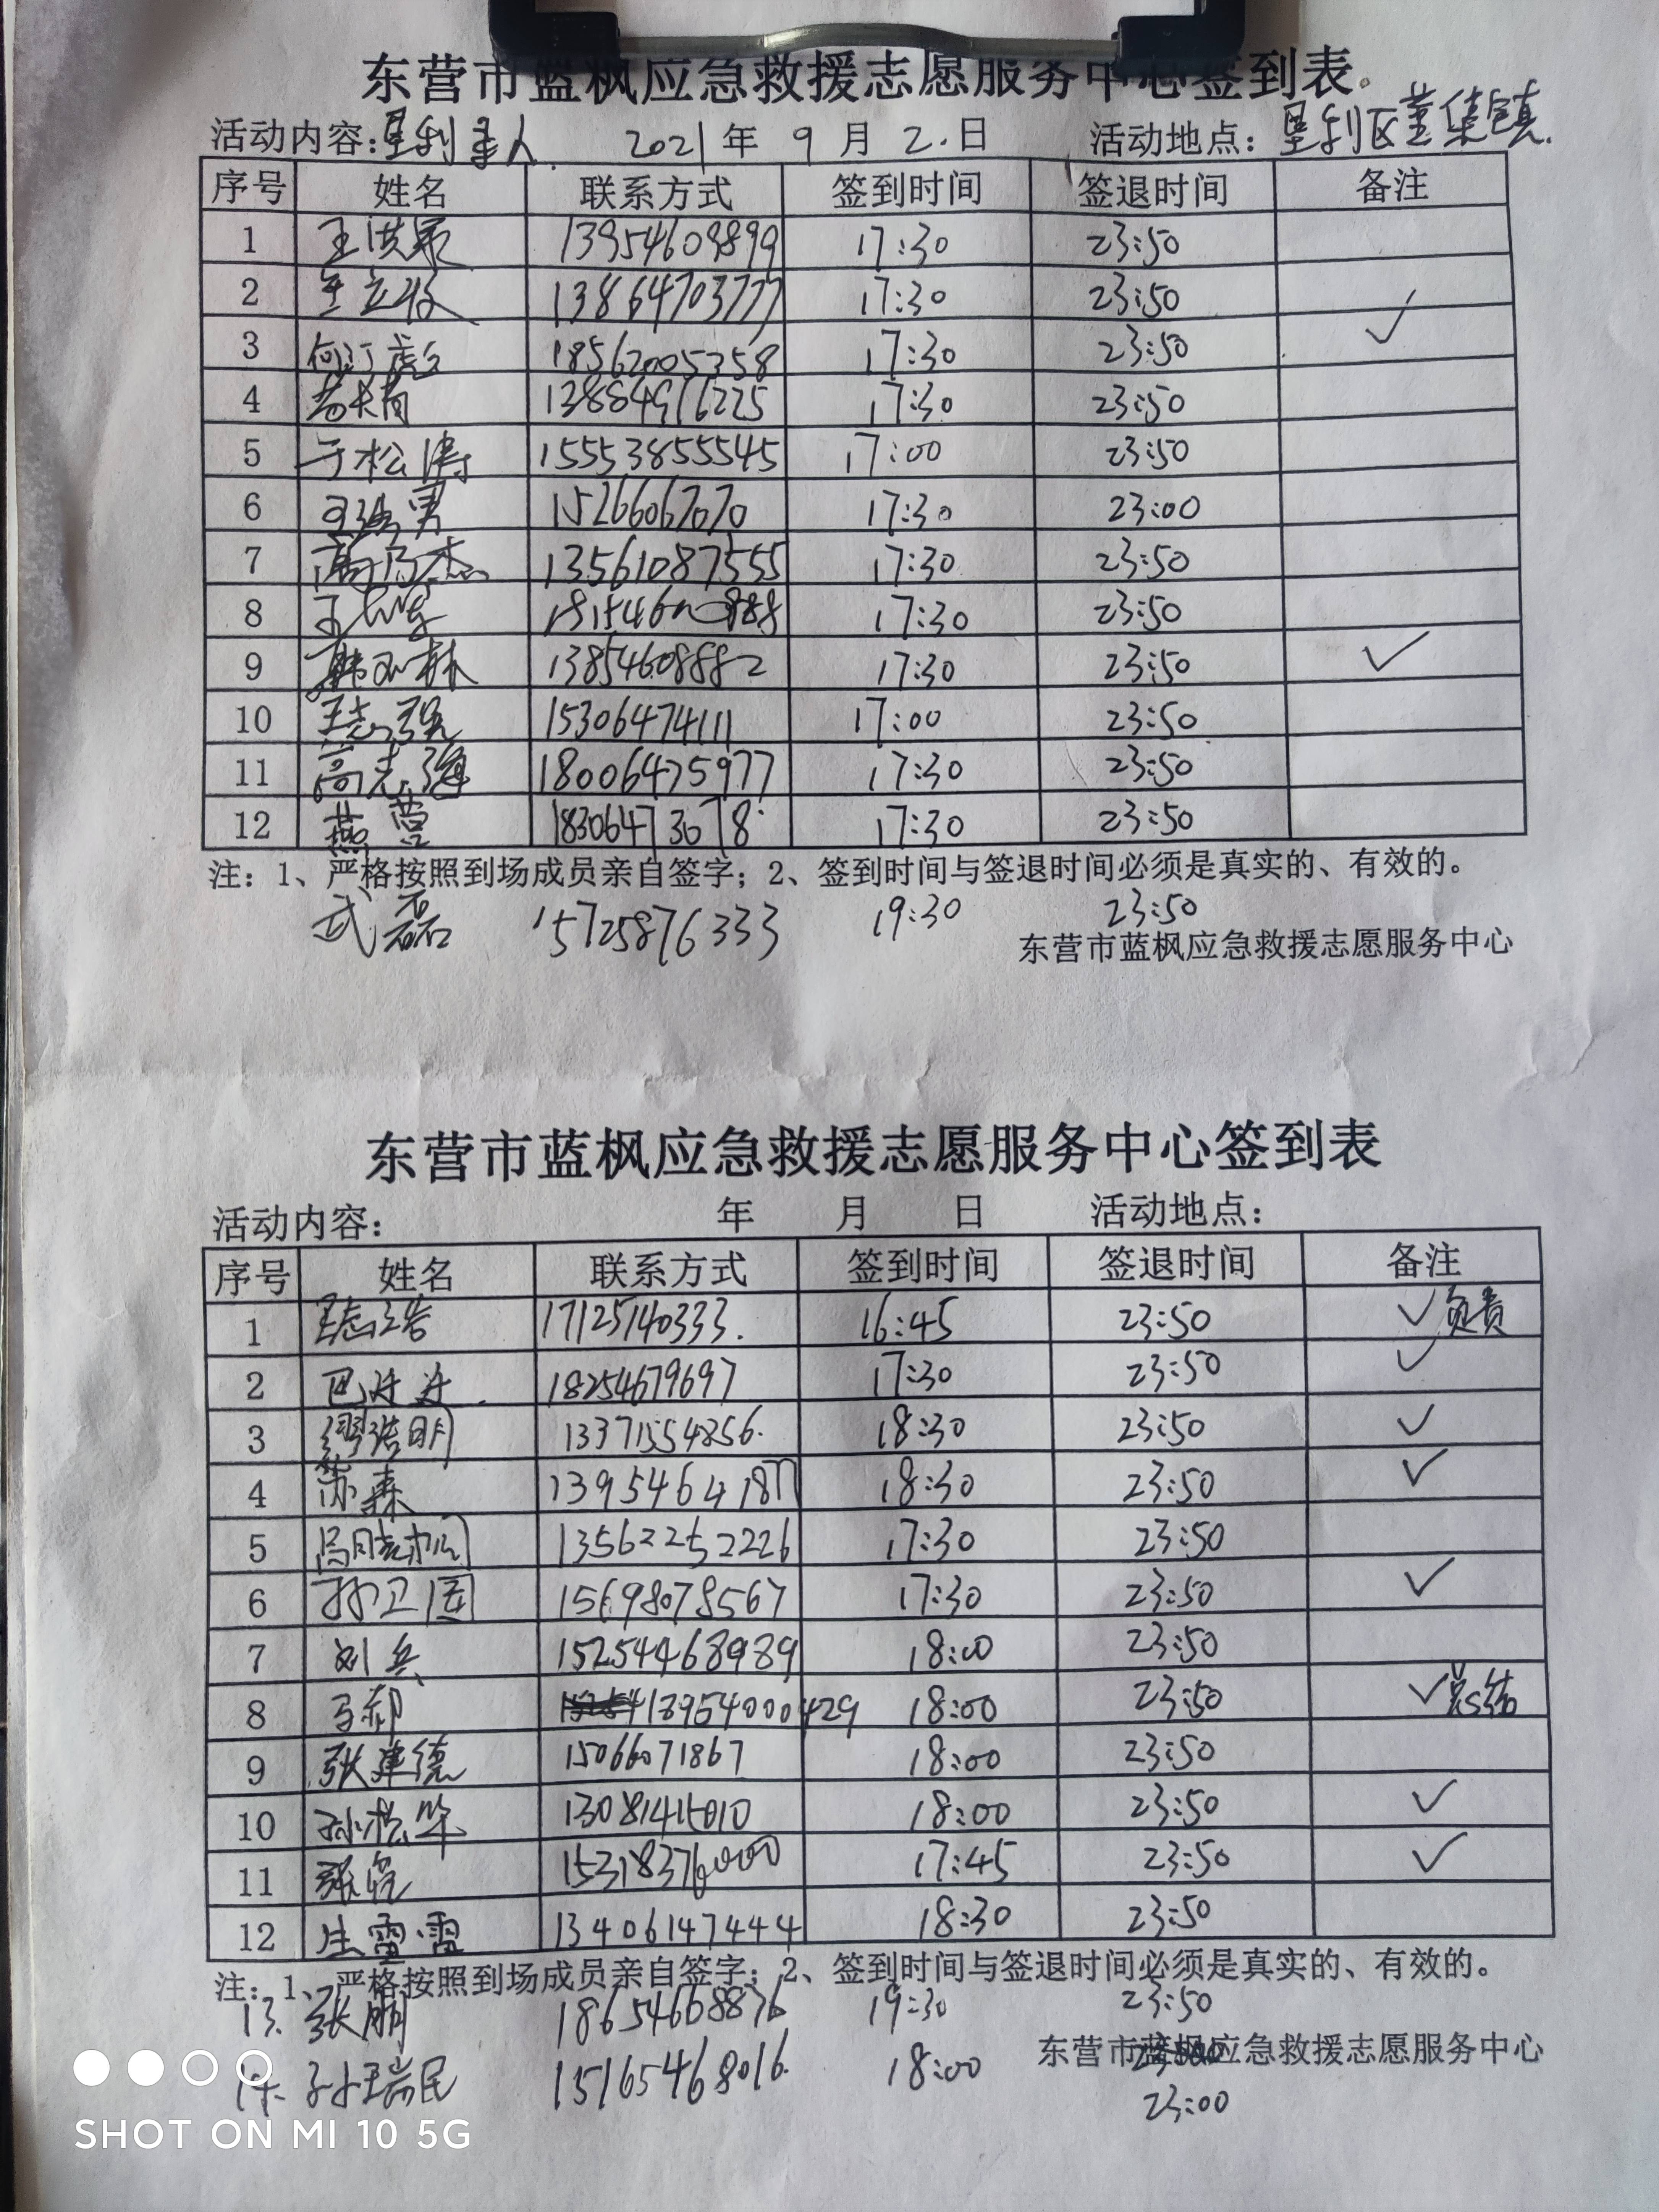 东营市蓝枫应急救援志愿服务中心签到表
活动内容:垦利寻人 2021年 9月 2.日 活动地点:垦利区董集镇.
序号 姓名 联系方式 签到时间 签退时间 备注
1 王洪泉 13954609899 17:30 23:50
2 13864703777 17:30 23:50
3 18562005358 17:30 23:50 ✓
4 13884916225 17:30 23:50
5 于松涛 15553855545 17:00 23:50
6 15266067070 17:30 23:00
7 高乃杰 13561087555 17:30 23:50
8 17:30 23:50
9 13854608882 17:30 23:50 ✓
10 王志强 15306474111 17:00 23:50
11 高志强 18006475977 17:30 23:50
12 燕营 18306473078 17:30 23:50
注:1、严格按照到场成员亲自签字;2、签到时间与签退时间必须是真实的、有效的。
武磊 15725876333 19:30 23:50
东营市蓝枫应急救援志愿服务中心
东营市蓝枫应急救援志愿服务中心签到表
活动内容: 年 月 日 活动地点:
序号 姓名 联系方式 签到时间 签退时间 备注
1 17125140333. 16:45 23:50 ✓负责
2 18254679697 17:30 23:50 ✓
3 缪浩明 13371554856. 18:30 23:50 ✓
4 苏森 18:30 23:50 ✓
5 13562252226 17:30 23:50
6 孙卫国 15698078567 17:30 23:50 ✓
7 刘兵 15254468989 18:00 23:50
8 13954000429 18:00 23:50 ✓总结
9 张建德 15066071867 18:00 23:50
10 孙松华 18:00 23:50 ✓
11 15318376000 17:45 23:50 ✓
12 生雷雷 13406147444 18:30 23:50
注:1、严格按照到场成员亲自签字;2、签到时间与签退时间必须是真实的、有效的。
13. 张鹏 18654608876 19:30 23:50
东营市蓝枫应急救援志愿服务中心
14. 孙瑞民 15165468016. 18:00 23:00
SHOT ON MI 10 5G